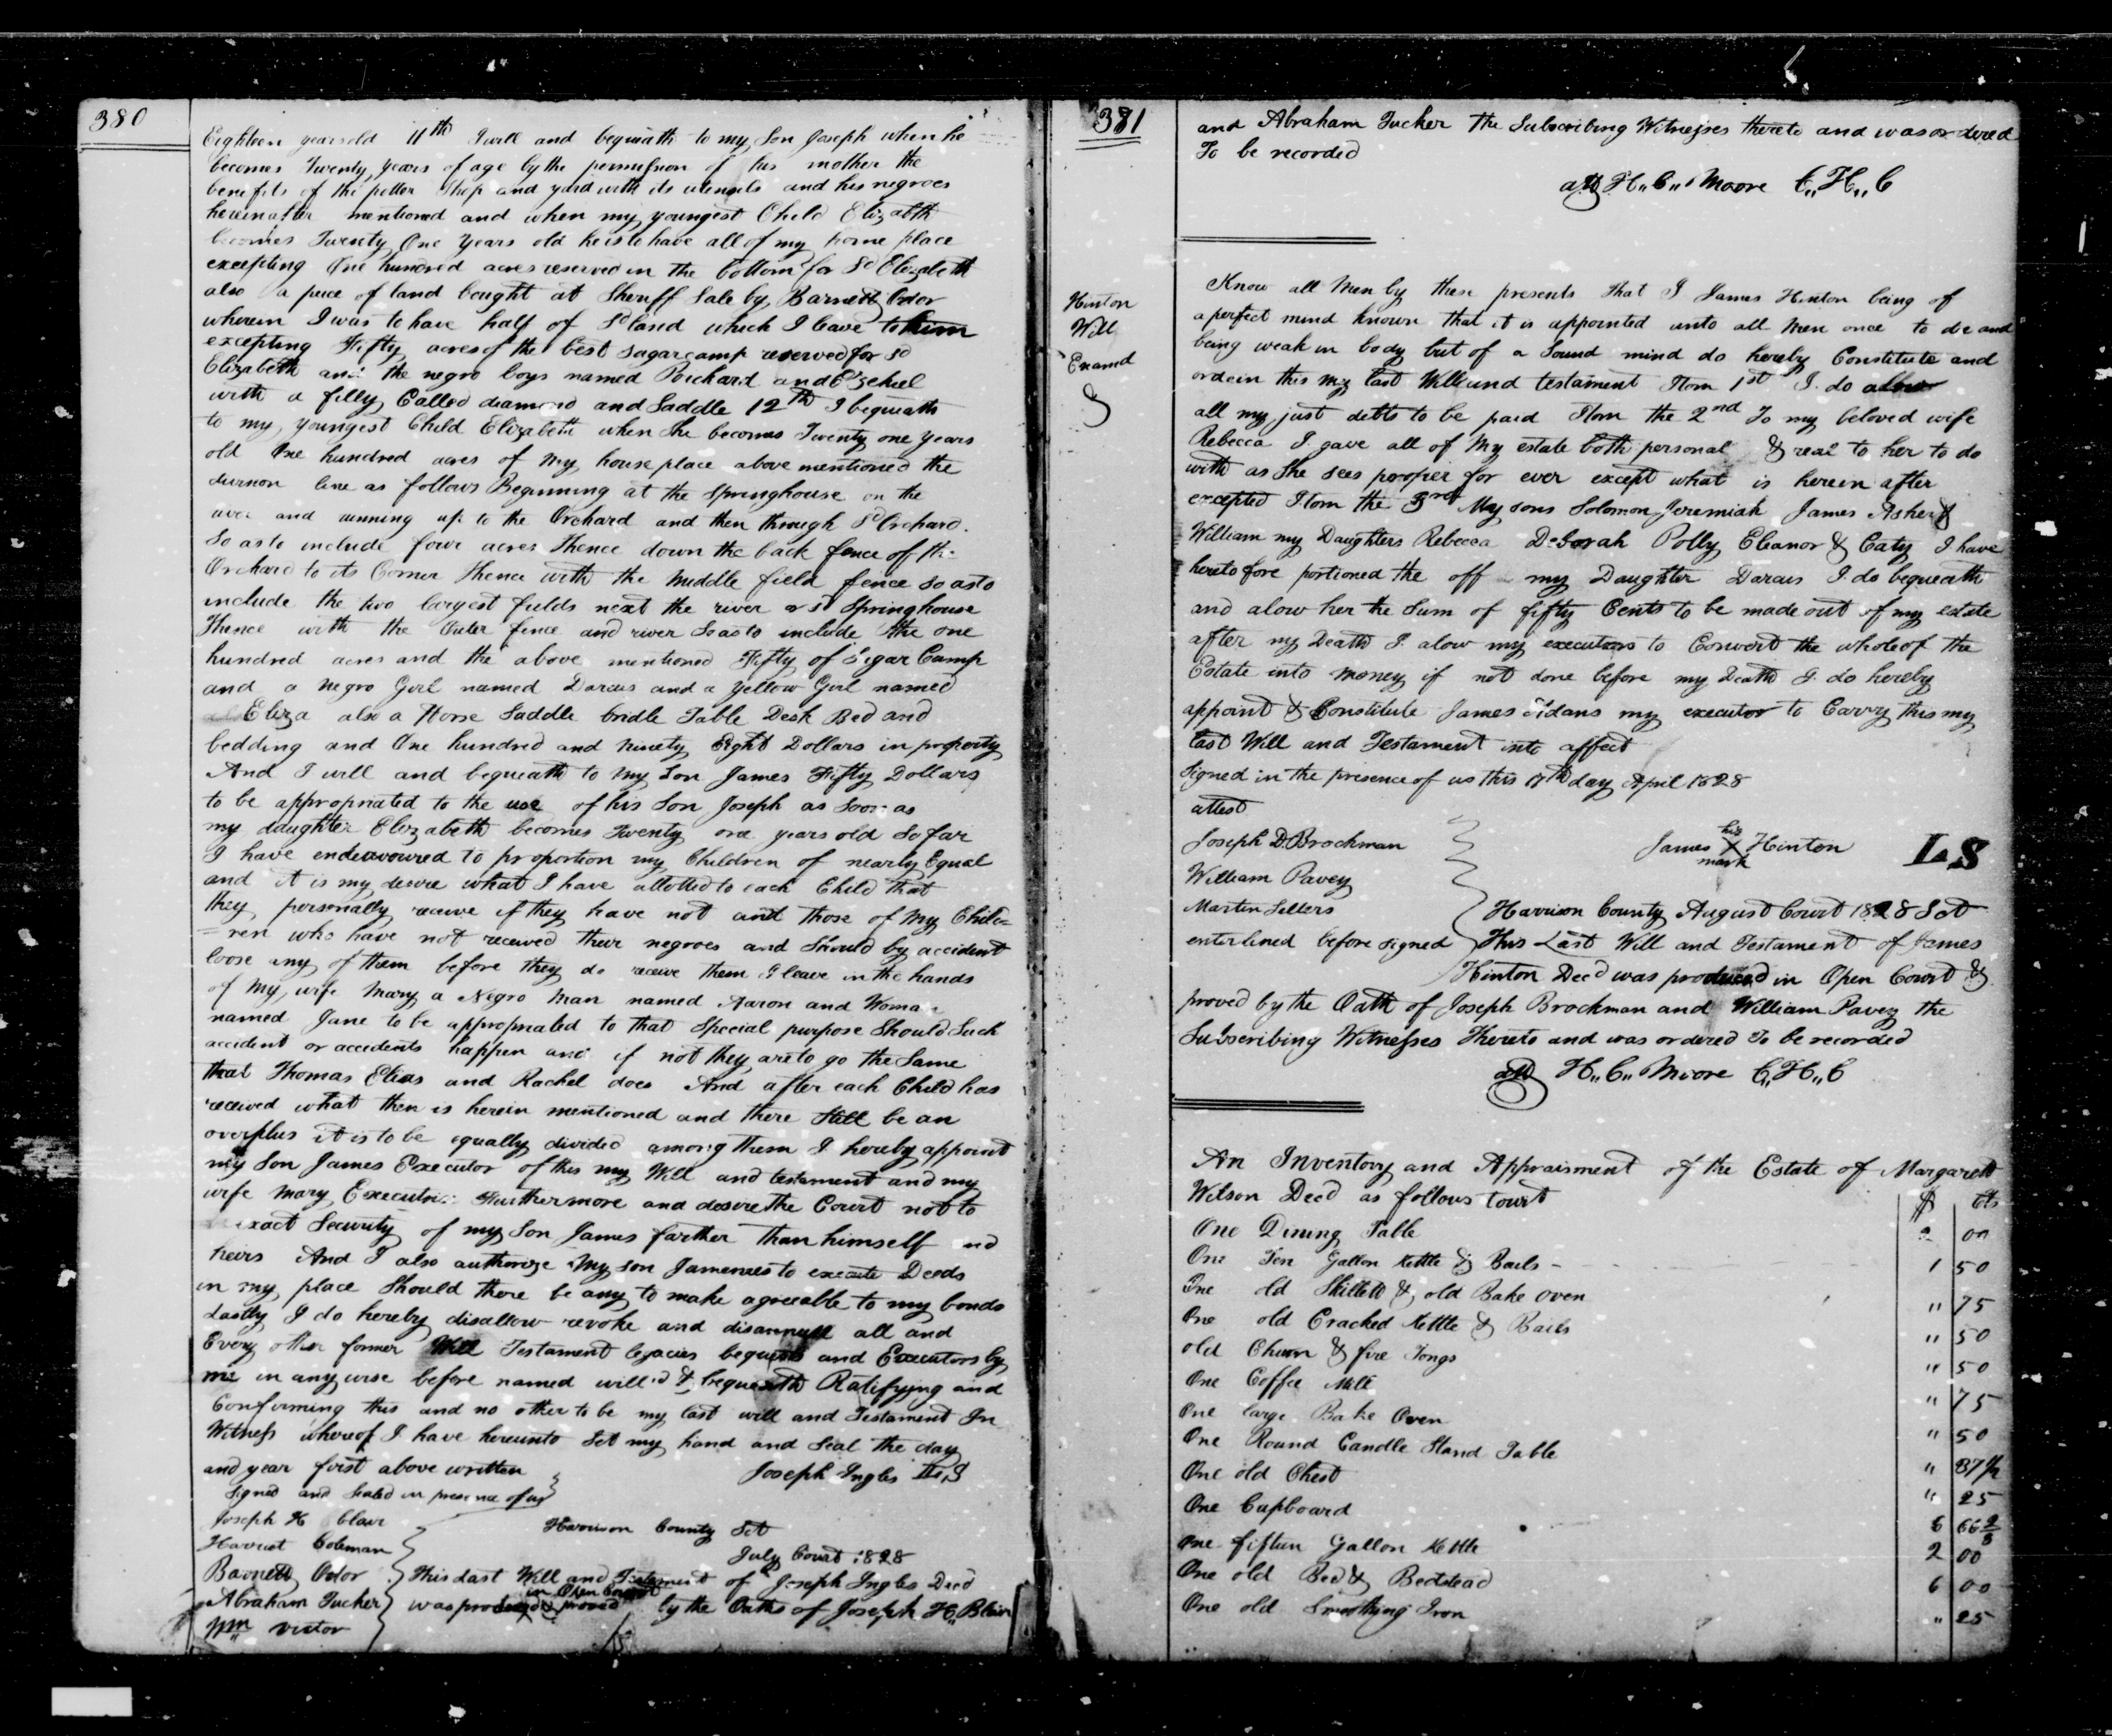 380
Eighteen years old 11th I will and bequeath to my Son Joseph when he
becomes Twenty years of age by the permission of his mother the
benefits of the potter Shop and yard with its utensils and his negroes
hereinafter mentioned and when my youngest Child Elizabth
becomes Twenty One Years old he is to have all of my home place
excepting One hundred acres reserved in the bottom for Sd Elizabeth
also a peice of land bought at Sheriff Sale by Barnett Odor
wherein I was to have half of Sd land which I leave to him
excepting Fifty acres of the best sugar camp reserved for sd
Elizabeth and the negro boys named and Ezekeel
with a filly Called diamond and Saddle 12th I bequeath
to my youngest Child Elizabeth when She becomes Twenty one years
old One hundred acres of my house place above mentioned the
line as follows Beginning at the Springhouse on the
river and running up to the Orchard and then through Sd Orchard.
So as to include four acres Thence down the back fence of the
Orchard to its Corner Thence with the middle field fence so as to
include the two largest fields next the river & sd Springhouse
Thence with the Outer fence and river So as to include the one
hundred acres and the above mentioned Fifty of Sugar Camp
and a negro Girl named Darcus and a yellow Girl named
Eliza also a Horse Saddle bridle Table Desk Bed and
bedding and One hundred and ninety Eight Dollars in property
And I will and bequeath to my Son James Fifty Dollars
to be appropriated to the use of his Son Joseph as Soon as
my daughter Elizabeth becomes Twenty one years old So far
I have endeavoured to proportion my Children of nearly Equal
and it is my desire what I have allotted to each Child that
they personally receive if they have not and those of my Child=
=ren who have not received their negroes and Should by accident
loose any of them before they do receive them I leave in the hands
of my wife Mary a Negro Man named Aaron and Woman
named Jane to be appropriated to that Special purpose Should Such
accident or accidents happen and if not they are to go the Same
that Thomas Elias and Rachel does And after each Child has
received what then is herein mentioned and there Still be an
overplus it is to be equally divided among them I hereby appoint
my Son James Executor of this my Will and testament and my
wife Mary Executrix Furthermore and desire the Court not to
exact Security of my Son James farther than himself and
heirs And I also authorize my son James to execute Deeds
in my place Should there be any to make agreeable to my bonds
Lastly I do hereby disallow revoke and disannull all and
Every other former Will Testament legacies bequests and Executors by
me in any wise before named will'd & bequeath Ratifying and
Conforming this and no other to be my last will and Testament In
Witness whereof I have hereunto Set my hand and Seal the day
and year first above written Joseph Ingles LS
Signed and Sealed in presence of us
Joseph H Blair Harrison County Sct
Harriet Coleman July Court 1828
Barnett Odor This Last Will and Testament of Joseph Ingles Decd
in Open Court
Abraham Tucker was produced & proved by the Oaths of Joseph H,, Blair
Wm Victor
381
and Abraham Tucker the Subscribing Witnesses thereto and was ordered
To be recorded
att H,,C,, Moore C,,H,,C
Hinton
Will
Examd
Know all Men by these presents that I James Hinton being of
a perfect mind known that it is appointed unto all Men once to die and
being weak in body but of a Sound mind do hereby Constitute and
ordein this my last Will and testament Itom 1st I do allow
all my just debts to be paid Itom the 2nd To my beloved wife
Rebecca I gave all of my estate both personal & real to her to do
with as She sees proper for ever except what is herein after
excepted Itom the 3rd My sons Solomon Jeremiah James Asher &
William my Daughters Rebecca Deborah Polly Eleanor & Caty I have
heretofore portioned the off my Daughter Darcus I do bequeath
and alow her the Sum of fifty Cents to be made out of my estate
after my Death I alow my executors to Convert the whole of the
Estate into money if not done before my Death I do hereby
appoint & Constitute James my executor to Carry this my
last Will and Testament into affect
Signed in the presence of us this 17th day April 1828
attest
Joseph D. Brockman James his X mark Hinton LS
William Pavey
Martin Sellers Harrison County August Court 1828 Sct
enterlined before signed This Last Will and Testament of James
Hinton Decd was produced in Open Court &
proved by the Oath of Joseph Brockman and William Pavey the
Subscribing Witnesses Thereto and was ordered To be recorded
att H,,C,, Moore C,,H,,C
An Inventory and Appraisment of the Estate of Margarett
Wilson Decd as follows towit $ Cts
One Dining Table 2 00
One Ten Gallon Kettle & Bails - 1 50
One old Skillett & old Bake oven " 75
One old Cracked Kettle & Bails " 50
old Churn & fire Tongs " 50
One Coffee Mill " 75
One large Bake Oven " 50
One Round Candle Stand Table " 87½
One old Chest " 25
One Cupboard 6 66 2/3
One fifteen Gallon Kettle 2 00
One old Bed & Bedstead 6 00
One old Smothing Iron " 25